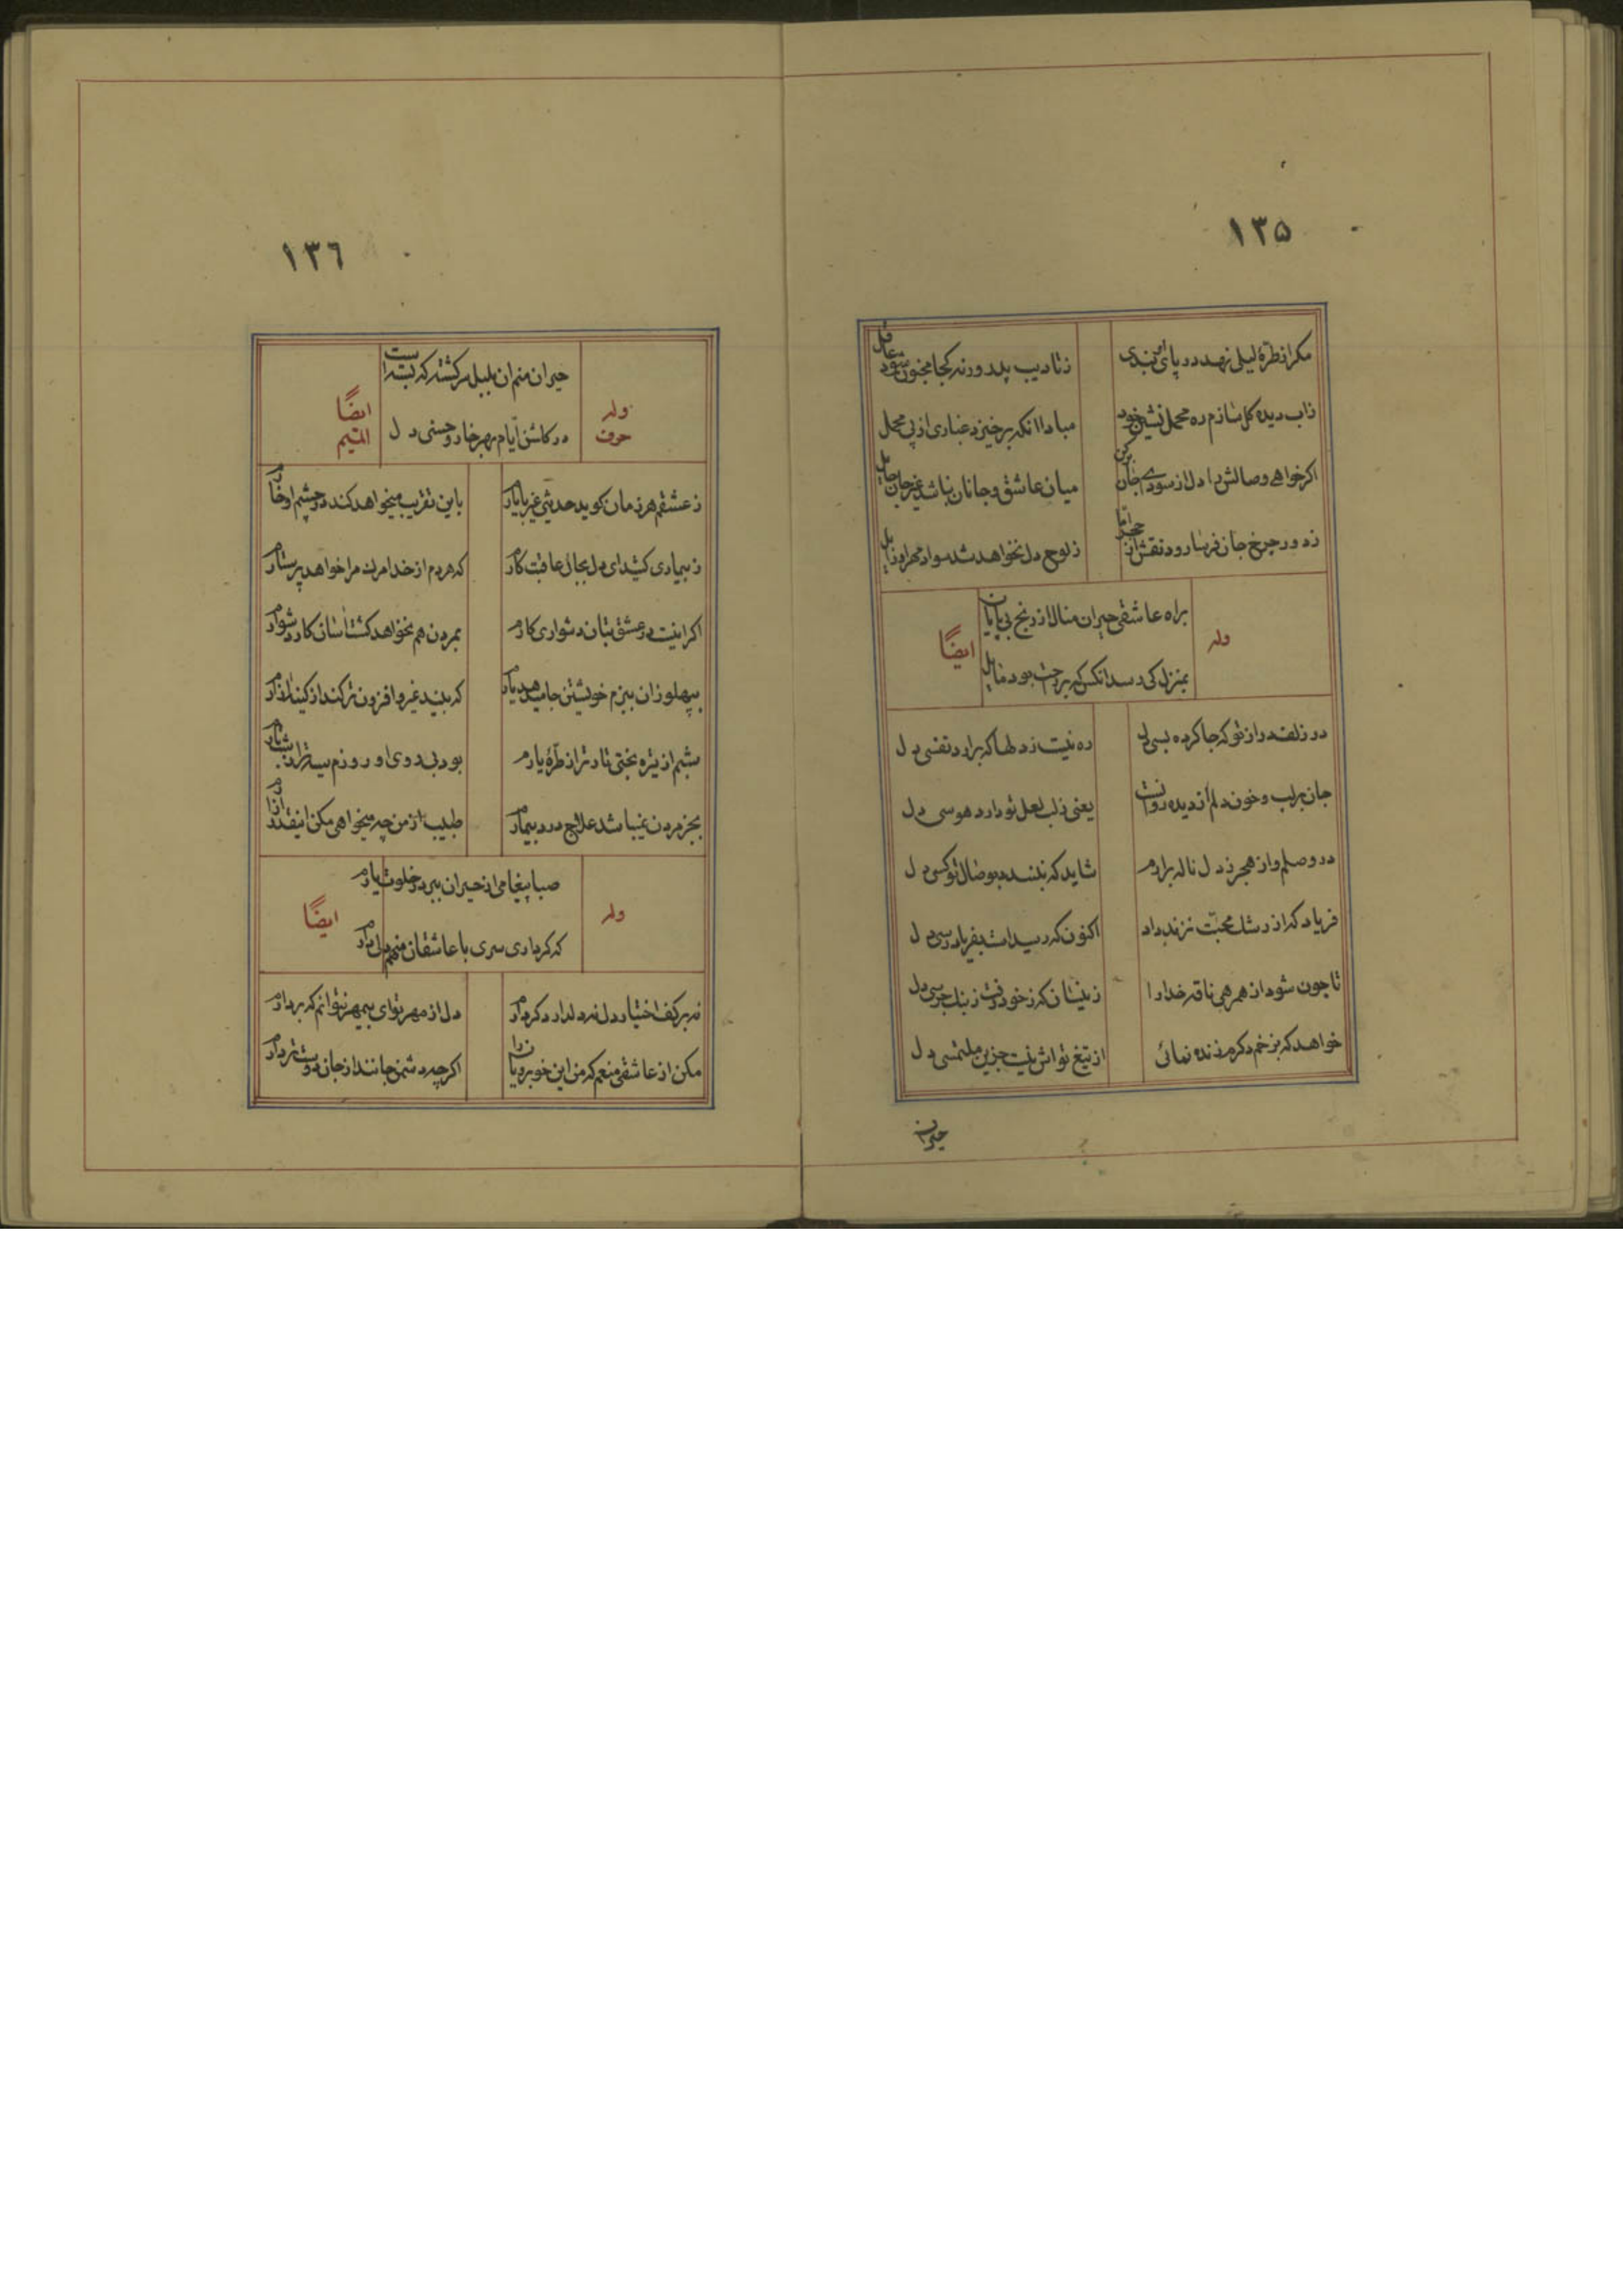 ١٣٥
مکر از طرّهٔ لیلی نهد در پای او بندی
ز تادیب پدر ورنه کجا مجنون شود عاقل
ز اب دیده کل سازم ره محمل نشین خود
مبادا انکه بر خیزد غباری از پی محمل
اکر خواهی وصالش را دل از سودای جان برکن
میان عاشق و جانان نباشد غیر جان حایل
ز دور چرخ جان فرسا رود نقش از حجر امّا
ز لوح دل نخواهد شد سواد مهر او زایل
وله
براه عاشقی حیران منال از رنج بی پایان
ایضًا
بمنزل کی رسد انکس که بر راحت بود مایل
در زلف دراز تو که جا کرده بسی دل
ره نیست ز دلها که برارد نفسی دل
جان بر لب و خون دلم از دیده روانست
یعنی ز لب لعل تو دارد هوسی دل
در وصلم و از هجر ز دل ناله برارم
شاید که نبندد بوصال تو کسی دل
فریاد که از رشک محبّت نزند داد
اکنون که رسیداست بفریاد رسی دل
تا چون شود از همرهی ناقه خدا را
زینسان که ز خود رفت ز بانک جرسی دل
خواهد که بزخم دکرم زنده نمائی
از تیغ تواش نیست جزین ملتمسی دل
حیران
١٣٦
حیران منم ان بلبل سرکشته که بسته است
وله
ایضًا
حرف
المیم
در کلشن ایّام بهر خار و خسی دل
ز عشقم هر زمان کوید حدیثی غیر با یارم
باین تقریب میخواهد کند در چشم او خارم
ز بیماری کشید ای دل بجائی عاقبت کارم
که هر دم از خدا مرک مرا خواهد پرستارم
اکر اینست در عشق بتان دشواری کارم
بمردن هم نخواهد کشت اسان کار دشوارم
بپهلو زان ببزم خویشتن جا میدهد یارم
که بیند غیر و افزون تر کند از کینه ازارم
شبم از تیره بختی تار تر از طرّهٔ یارم
بود بی روی او روزم سیه تر از شب تارم
بجز مردن نمیباشد علاج درد بیمارم
طبیب از من چه میخواهی مکن اینقدر ازارم
وله
صبا پیغامی از حیران ببر در خلوت یارم
ایضًا
که کر داری سری با عاشقان منهم دلی دارم
نه بر کف اختیار دل نه دلدار دکر دارم
دل از مهر تو ای بیمهر نتوانم که بردارم
مکن از عاشقی منعم که من این خوبرویان را
اکر چه دشمن جانند از جان دوست تر دارم